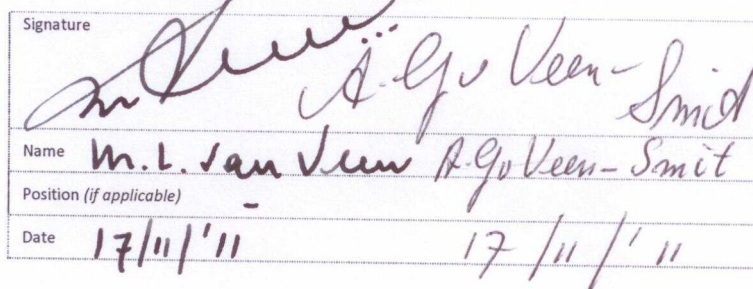 Signature
A.G. v Veen-Smit
Name M.L. van Veen A.G. v Veen-Smit
Position (if applicable) -
Date 17/11/'11 17/11/'11